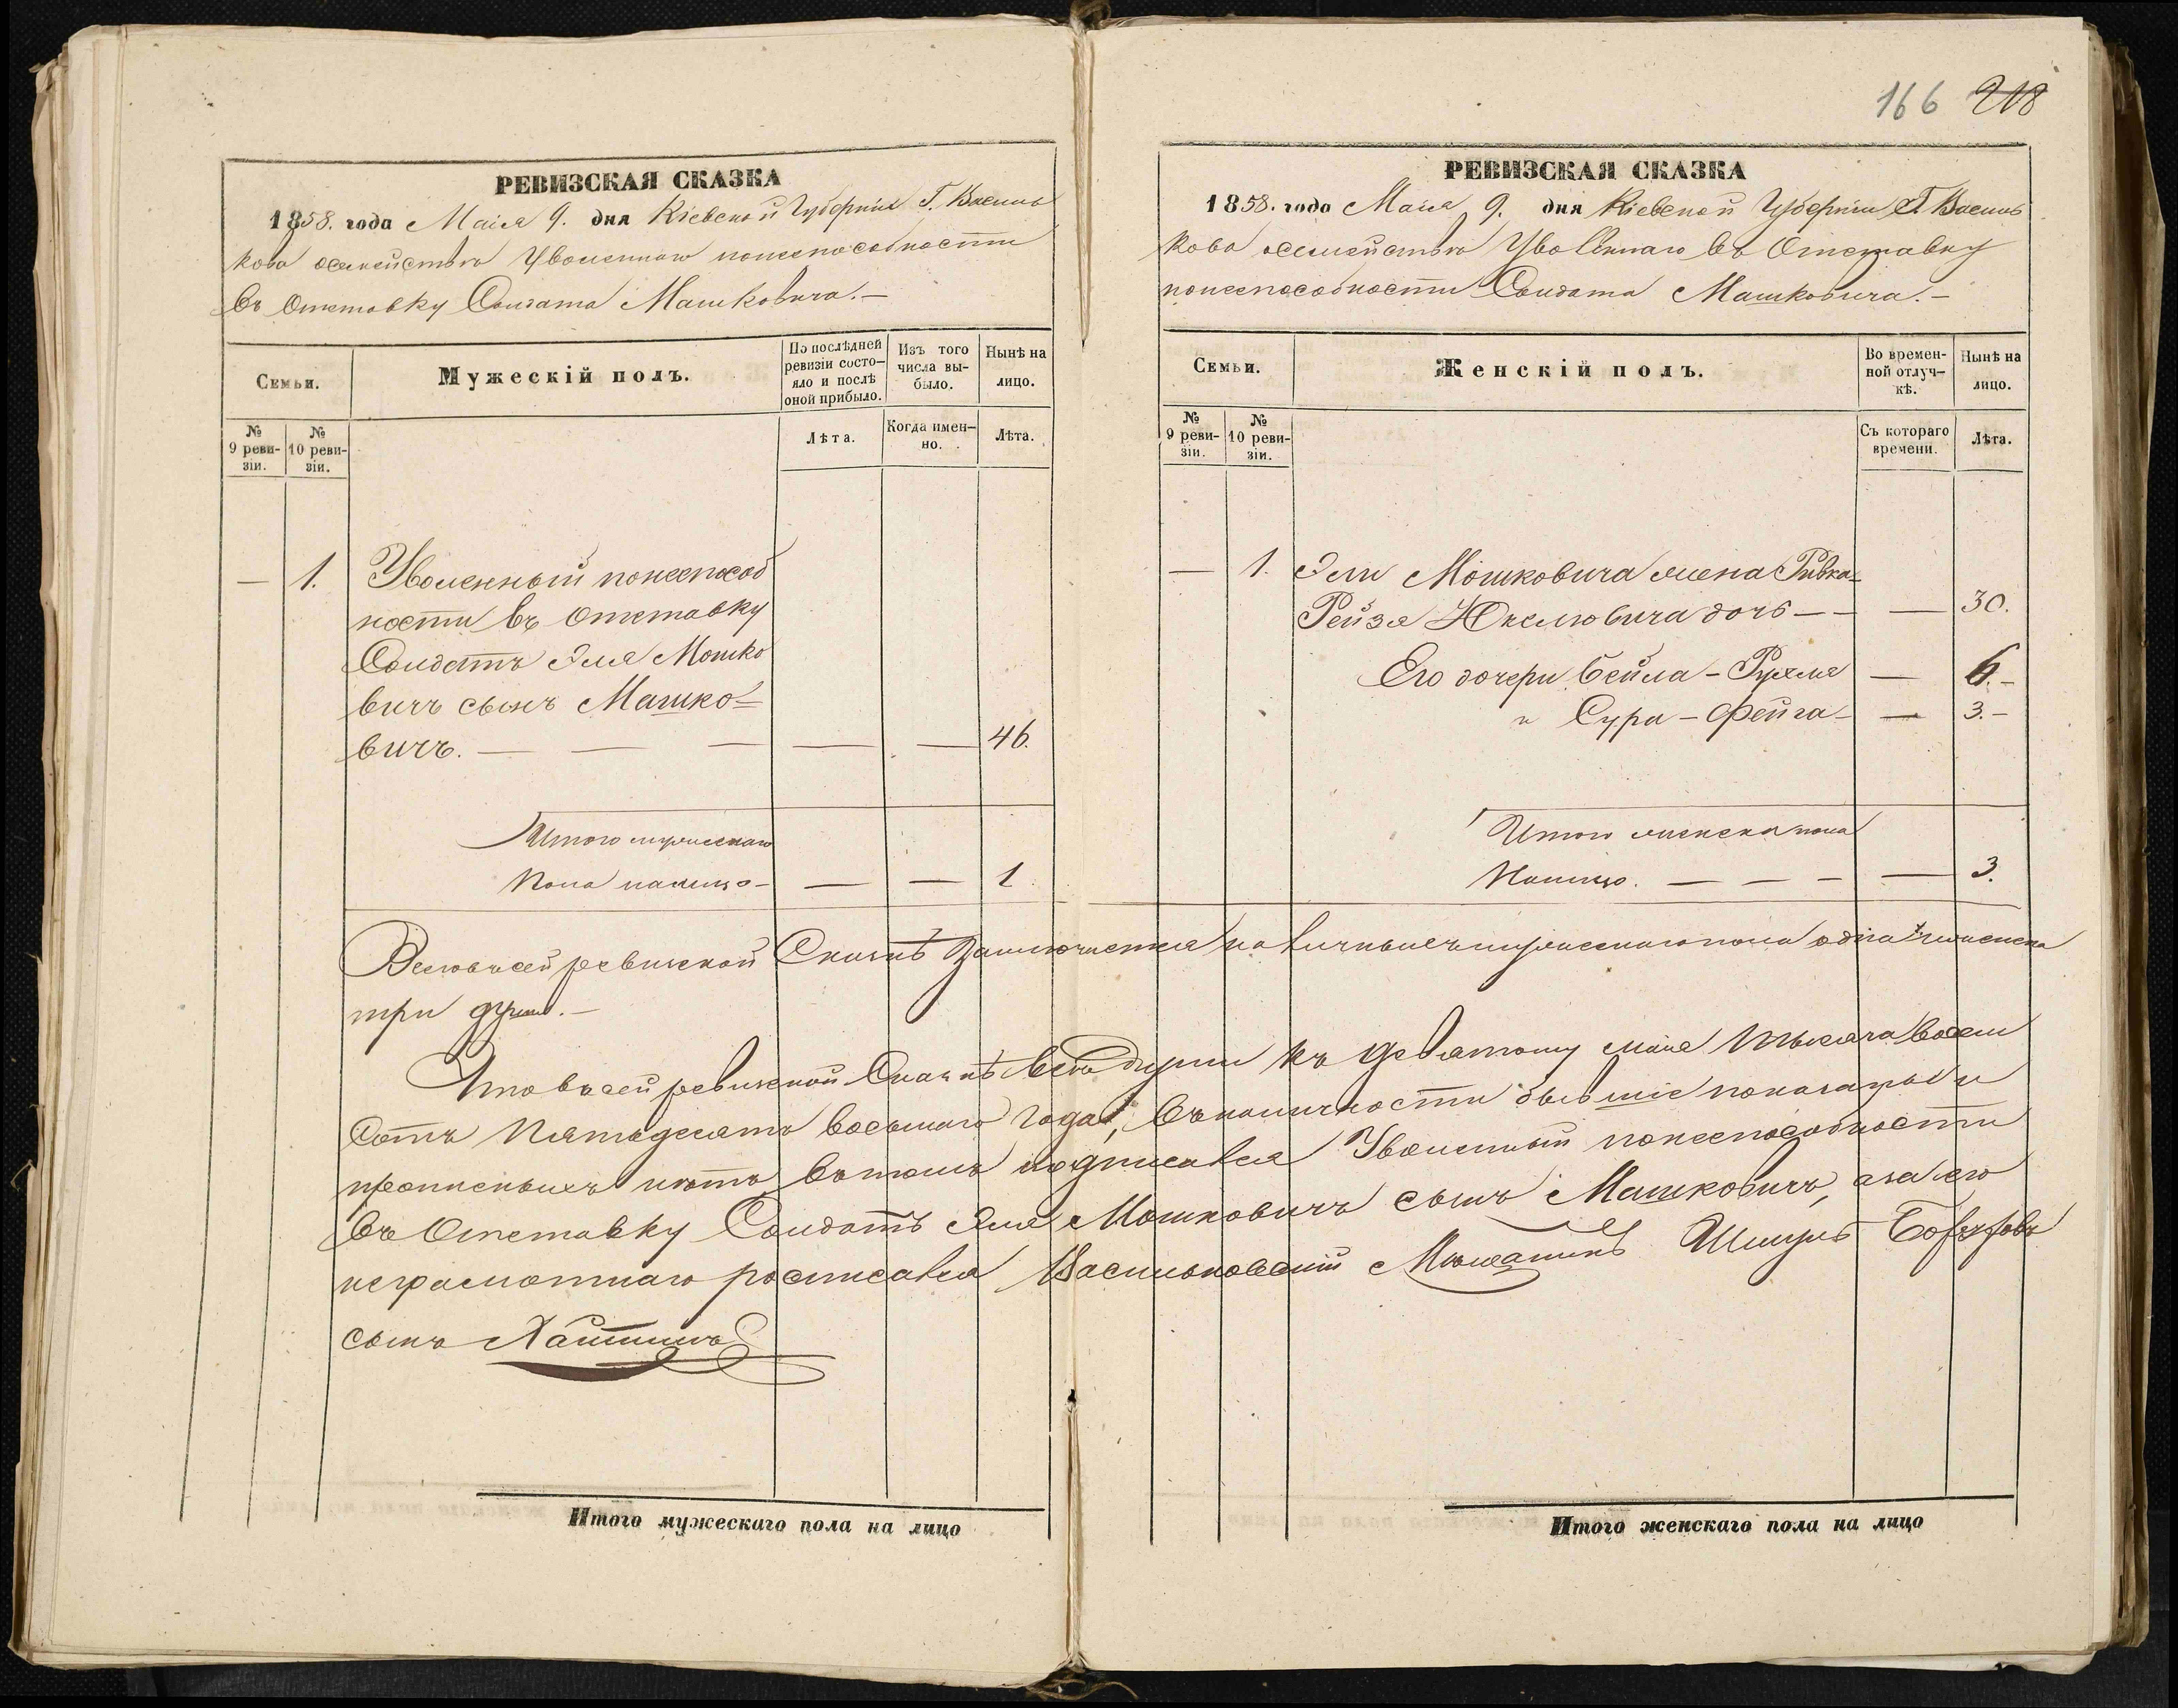 166 218
РЕВИЗСКАЯ СКАЗКА
1858. года Маія 9. дня Кіевской Губерніи Г. Василь
кова осемействѣ Уволеннаго понеспособности
въ Отставку Солдата Машковича.—
Семьи.
Мужескій полъ.
По послѣдней
ревизіи состо-
яло и послѣ
оной прибыло.
Изъ того
числа вы-
было.
Нынѣ на
лицо.
№
9 реви-
зіи.
№
10 реви-
зіи.
Лѣта.
Когда имен-
но.
Лѣта.
— 1. Уволенный понеспособ
ности въ Отставку
Солдатъ Эля Мошко
вичъ сынъ Машко=
вичъ. — — — — — 46.
Итого мужескаго
Пола налицо — — — 1
РЕВИЗСКАЯ СКАЗКА
1858. года Маія 9. дня Кіевской Губерніи Г. Василь
кова осемействѣ Уволеннаго въ Отставку
понеспособности Солдата Машковича.—
Семьи.
Женскій полъ.
Во времен-
ной отлуч-
кѣ.
Нынѣ на
лицо.
№
9 реви-
зіи.
№
10 реви-
зіи.
Съ котораго
времени.
Лѣта.
— 1. Эли Мошковича жена Ривка=
Рейзя Юкелювича дочь — — — 30.
Его дочери Бейла-Рухля — 6.-
" Сура-Фейга — — 3.-
Итого женска пола
Налицо. — — — — 3.
Всеговъсей ревизской Сказкѣ Заключается наличныхъ мужескаго пола одна и женска
три души.—
Что въсей ревизской Сказкѣ всѣ души къ девятому маія тысяча восем
Сотъ Пятьдесятъ восьмаго года, въналичности бывшіе показаны и
прописныхъ нѣтъ вътомъ подписался Уволенный понеспособности
въ Отставку Солдатъ Эля Мошковичъ сынъ Машковичъ, азаего
неграмотнаго росписался Васильковскій Мѣщанинъ Шмуль
сынъ
Итого мужескаго пола на лицо
Итого женскаго пола на лицо